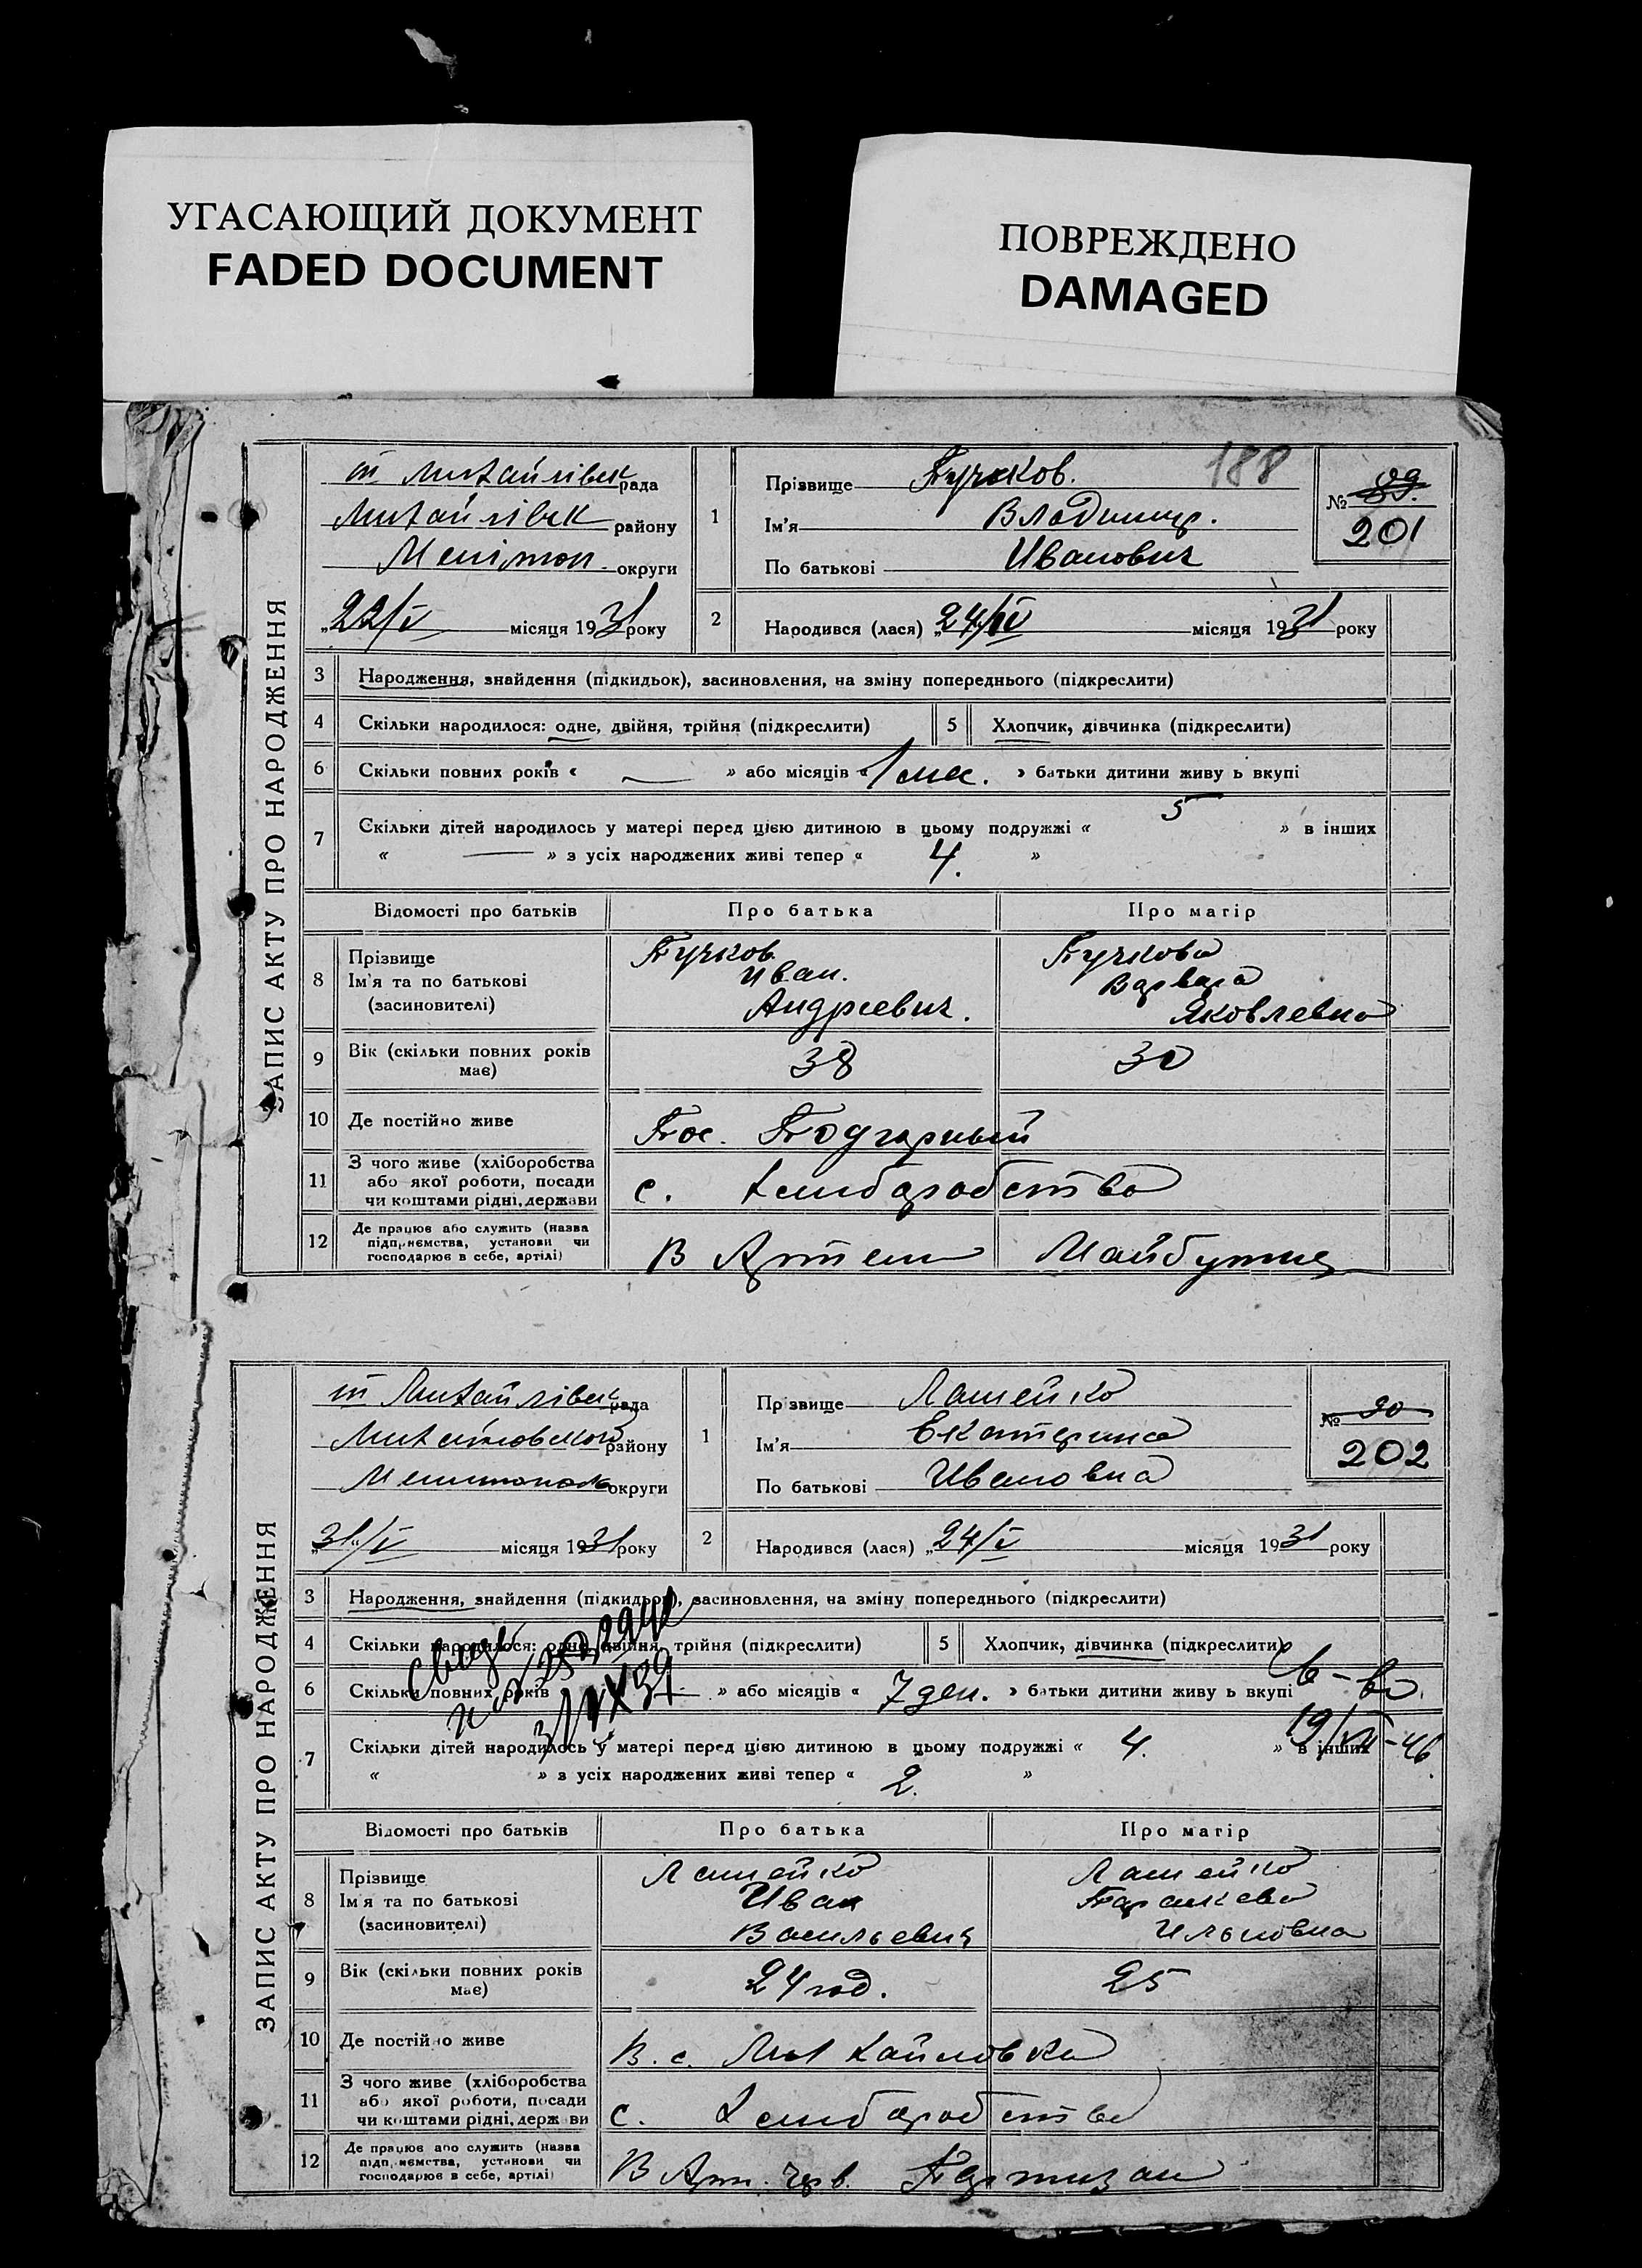 УГАСАЮЩИЙ ДОКУМЕНТ
FADED DOCUMENT
ПОВРЕЖДЕНО
DAMAGED
188
ЗАПИС АКТУ ПРО НАРОДЖЕННЯ
Михайлівск рада
Михайлівск району
Мелітоп. округи
„22/V місяця 1931 року
1
Прізвище Пучков.
Ім'я Владимир.
По батькові Иванович
№ 89.
201
2
Народився (лася) „24/IV місяця 1931 року
3 Народження, знайдення (підкидьок), засиновлення, на зміну попереднього (підкреслити)
4 Скільки народилося: одне, двійня, трійня (підкреслити) 5 Хлопчик, дівчинка (підкреслити)
6 Скільки повних років « — » або місяців « 1 мес. » батьки дитини живу ь вкупі
7 Скільки дітей народилось у матері перед цією дитиною в цьому подружжі « 5 » в інших
« — » з усіх народжених живі тепер « 4. »
Відомості про батьків Про батька Про матір
8 Прізвище
Ім'я та по батькові
(засиновителі)
Пучков
Иван.
Андреевич.
Пучкова
Варвара
Яковлевна
9 Вік (скільки повних років
має)
38 30
10 Де постійно живе Пос. Подгорный
11 З чого живе (хліборобства
або якої роботи, посади
чи коштами рідні, держави
с. Хлиборобство
12 Де працює або служить (назва
підприємства, установи чи
господарює в себе, артілі)
В Артели Майбутнє
ЗАПИС АКТУ ПРО НАРОДЖЕННЯ
Михайлівск рада
Михайловского району
Мелитополь округи
„31"/V місяця 1931 року
1
Прізвище Лашейко
Ім'я Екатерина
По батькові Ивановна
№ 90
202
2
Народився (лася) „24/V місяця 1931 року
3 Народження, знайдення (підкидьок), засиновлення, на зміну попереднього (підкреслити)
4 Скільки народилося: одне, двійня, трійня (підкреслити) 5 Хлопчик, дівчинка (підкреслити)
6 Скільки повних років » або місяців « 7 ден. » батьки дитини живу ь вкупі
7 Скільки дітей народилось у матері перед цією дитиною в цьому подружжі « 4. » в інших
« » з усіх народжених живі тепер « 2. »
Відомості про батьків Про батька Про матір
8 Прізвище
Ім'я та по батькові
(засиновителі)
Лашейко
Иван
Васильевич
Лашейко
Параскева
Ильновна
9 Вік (скільки повних років
має)
24 год. 25
10 Де постійно живе В. с. Михайловки
11 З чого живе (хліборобства
або якої роботи, посади
чи коштами рідні, держави
с. Хлиборобства
12 Де працює або служить (назва
підприємства, установи чи
господарює в себе, артілі)
В Арт. Черв. Партизан